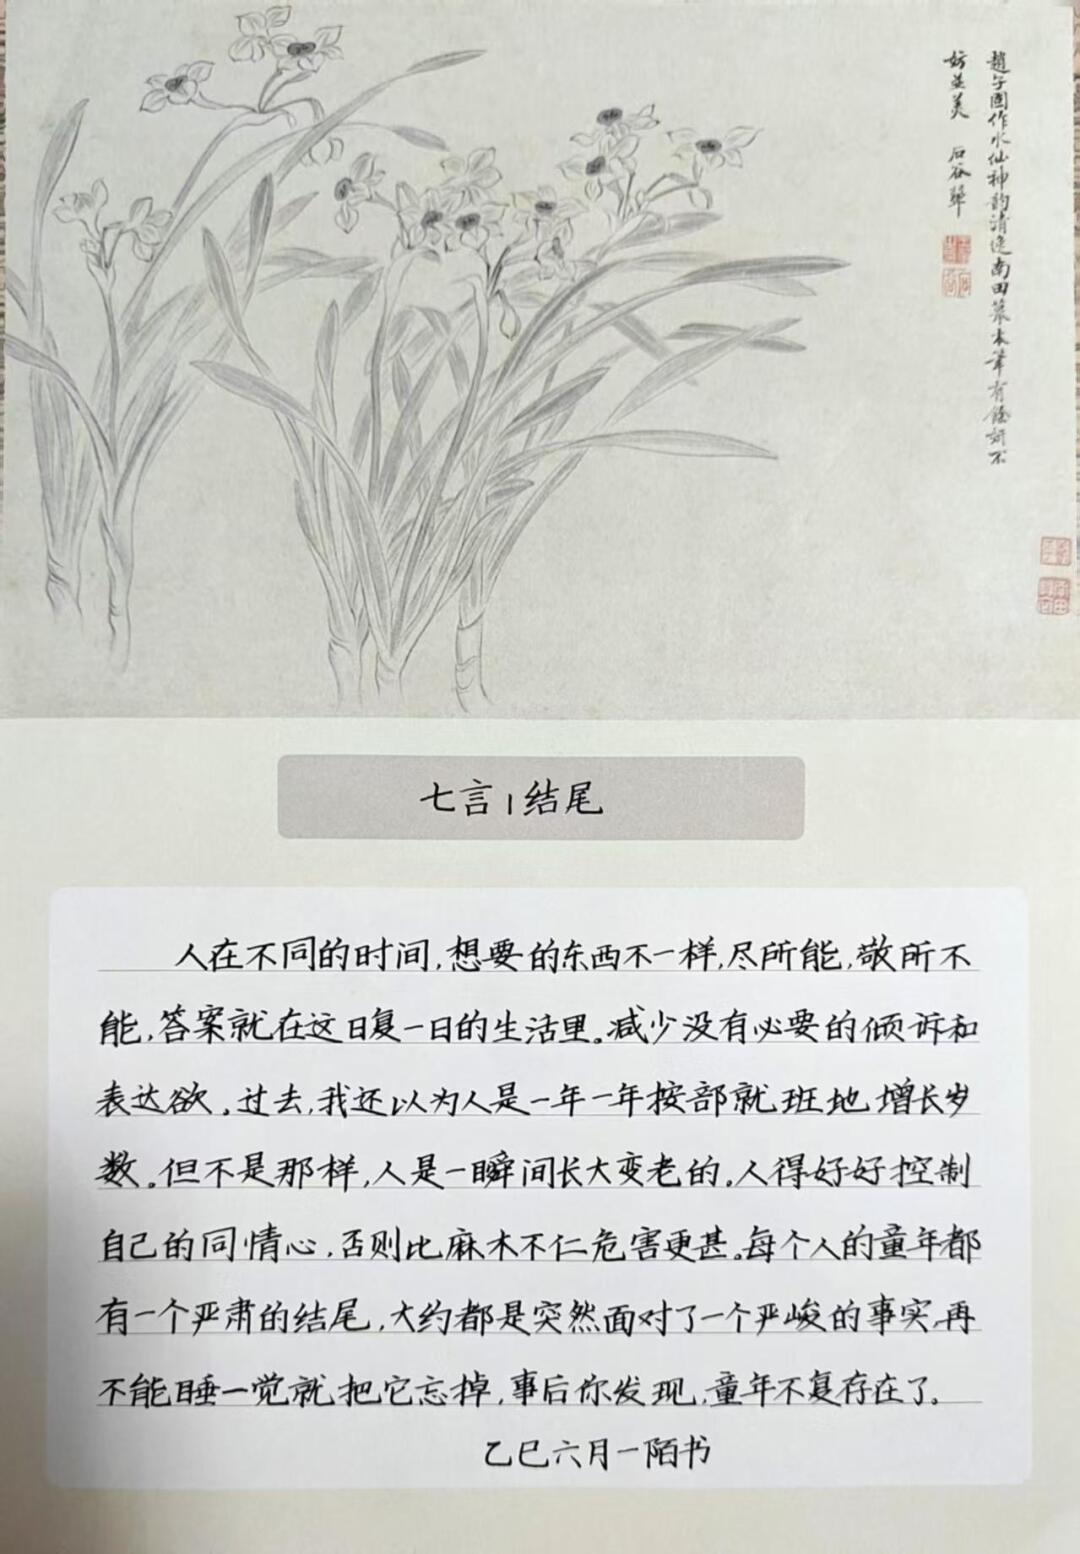 趙子固作水仙神韵清逸南田藁本筆有餘妍不
妨並美 石谷
七言|结尾
人在不同的时间,想要的东西不一样,尽所能,敬所不
能,答案就在这日复一日的生活里。减少没有必要的倾诉和
表达欲。过去,我还以为人是一年一年按部就班地增长岁
数。但不是那样,人是一瞬间长大变老的。人得好好控制
自己的同情心,否则比麻木不仁危害更甚。每个人的童年都
有一个严肃的结尾,大约都是突然面对了一个严峻的事实,再
不能睡一觉就把它忘掉,事后你发现,童年不复存在了。
乙巳六月一陌书